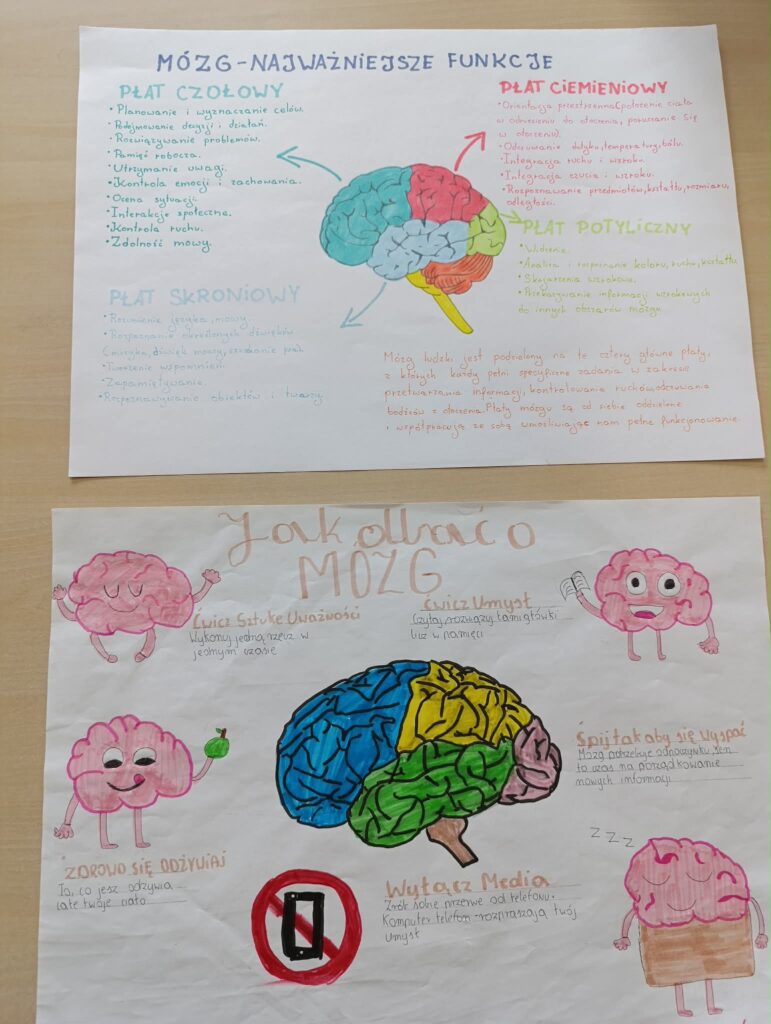 MÓZG-NAJWAŻNIEJSZE FUNKCJE
PŁAT CZOŁOWY
• Planowanie i wyznaczanie celów.
• Podejmowanie decyzji i działań.
• Rozwiązywanie problemów.
• Pamięć robocza.
• Utrzymanie uwagi.
• Kontrola emocji i zachowania.
• Ocena sytuacji.
• Interakcje społeczne.
• Kontrola ruchu.
• Zdolność mowy.
PŁAT CIEMIENIOWY
• Orientacja przestrzenna(położenie ciała
w odniesieniu do otoczenia, poruszanie się
w otoczeniu).
• Odczuwanie dotyku, temperatury, bólu.
• Integracja ruchu i wzroku.
• Integracja czucia i wzroku.
• Rozpoznawanie przedmiotów, kształtu, rozmiaru,
odległości.
PŁAT POTYLICZNY
• Widzenie.
• Analiza i rozpoznanie koloru, ruchu, kształtu.
• Skojarzenia wzrokowe.
• Przekazywanie informacji wzrokowych
do innych obszarów mózgu.
PŁAT SKRONIOWY
• Rozumienie języka, mowy.
• Rozpoznanie określonych dźwięków
(muzyka, dźwięk mowy, szczekanie psa).
• Tworzenie wspomnień.
• Zapamiętywanie.
• Rozpoznawywanie obiektów i twarzy.
Mózg ludzki jest podzielony na te cztery główne płaty,
z których każdy pełni specyficzne zadania w zakresie
przetwarzania informacji, kontrolowanie ruchów, odczuwania
bodźców z otoczenia. Płaty mózgu są od siebie oddzielone
i współpracują ze sobą umożliwiając nam pełne funkcjonowanie.
Jak dbać o
MÓZG
Ćwicz Sztukę Uważności
Wykonuj jedną rzecz w
jednym czasie
Ćwicz Umysł
Czytaj, rozwiązuj łamigłówki
licz w pamięci
Śpij tak aby się wyspać
Mózg potrzebuje odpoczynku, sen
to czas na porządkowanie
nowych informacji
ZDROWO SIĘ ODŻYWIAJ
To, co jesz odżywia
całe twoje ciało
Wyłącz Media
Zrób sobie przerwę od telefonu.
Komputer telefon rozpraszają twój
umysł
Z Z Z